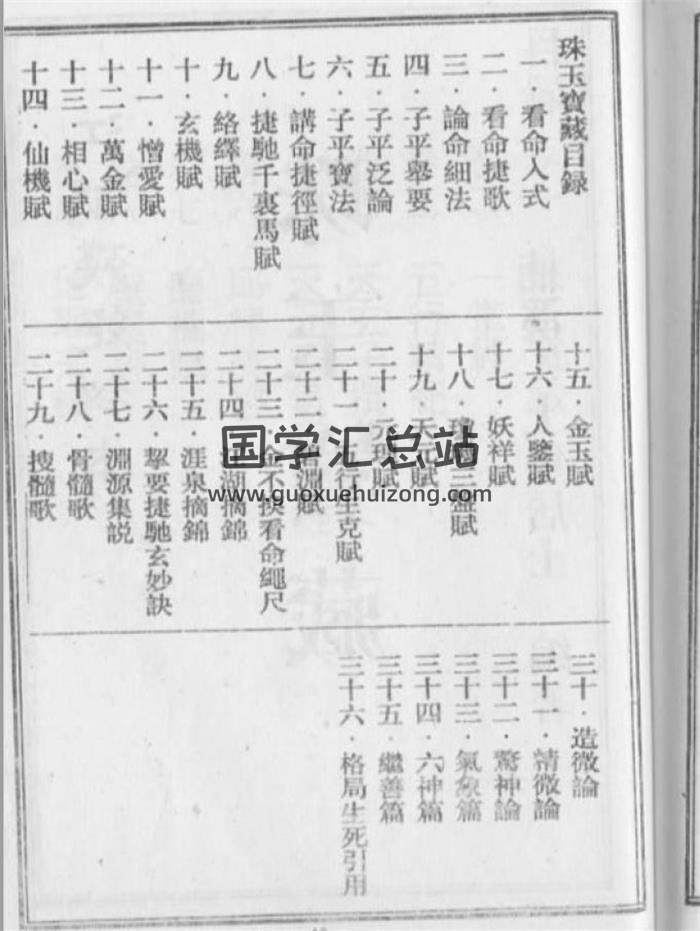 珠玉寶藏目錄
一·看命入式
二·看命捷歌
三·論命細法
四·子平舉要
五·子平泛論
六·子平寶法
七·講命捷徑賦
八·捷馳千裏馬賦
九·絡繹賦
十·玄機賦
十一·憎愛賦
十二·萬金賦
十三·相心賦
十四·仙機賦
十五·金玉賦
十六·人鑒賦
十七·妖祥賦
十八·三盤賦
十九·天元賦
二十·元理賦
二十一·五行生克賦
二十二·淵賦
二十三·金不換看命繩尺
二十四·湖摘錦
二十五·涯泉摘錦
二十六·挈要捷馳玄妙訣
二十七·淵源集說
二十八·骨髓歌
二十九·搜髓歌
三十·造微論
三十一·精微論
三十二·驚神論
三十三·氣象篇
三十四·六神篇
三十五·繼善篇
三十六·格局生死引用
国学汇总站
www.guoxuehuizong.com